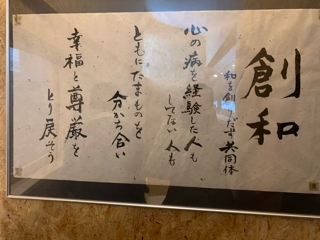 創和
和を創りだす共同体
心の病を経験した人も
してない人も
ともにたまものを
分かち合い
幸福と尊厳を
とり戻そう